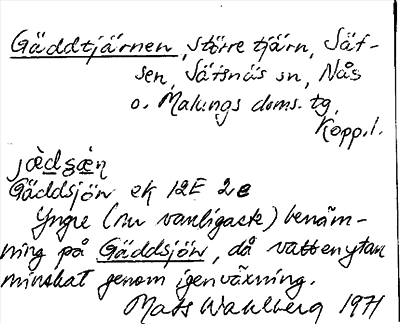 Gäddtjärnen, större tjärn, Sät-
sen, Säfsnäs sn, Nås
o. Malungs doms. tg,
Kopp. l.
Gäddsjön ek 12E 2e
Yngre (nu vanligaste) benäm-
ning på Gäddsjön, då vattenytan
minskat genom igenväxning.
Mats Wahlberg 1971